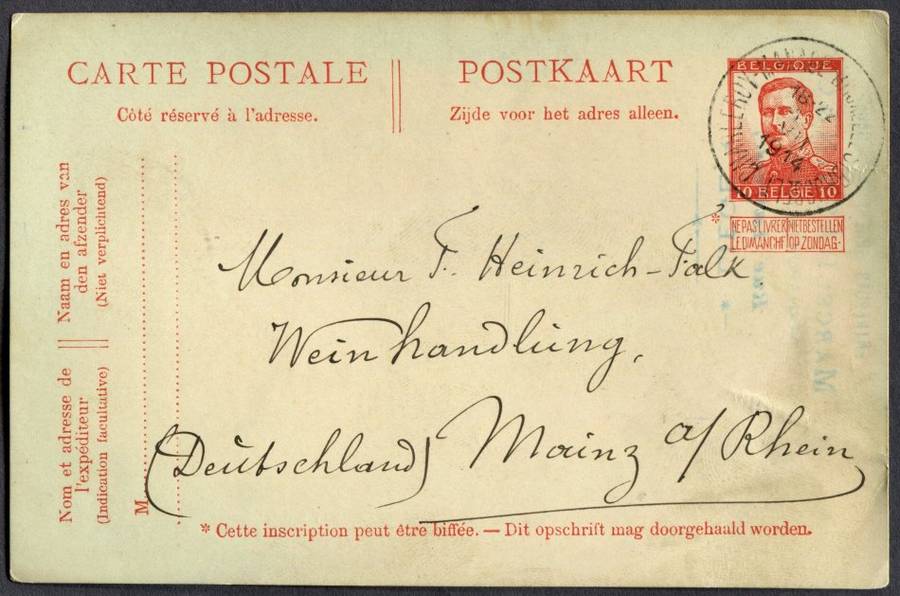 CARTE POSTALE
Côté réservé à l'adresse.
POSTKAART
Zijde voor het adres alleen.
BELGIQUE
10 BELGIE 10
18-22
1914
*
NE PAS LIVRER LE DIMANCHE
NIET BESTELLEN OP ZONDAG
Naam en adres van
den afzender
(Niet verplichtend)
Nom et adresse de
l'expéditeur
(Indication facultative)
M
Monsieur F. Heinrich-Falk
Weinhandlung,
(Deutschland) Mainz a/Rhein
* Cette inscription peut être biffée. — Dit opschrift mag doorgehaald worden.